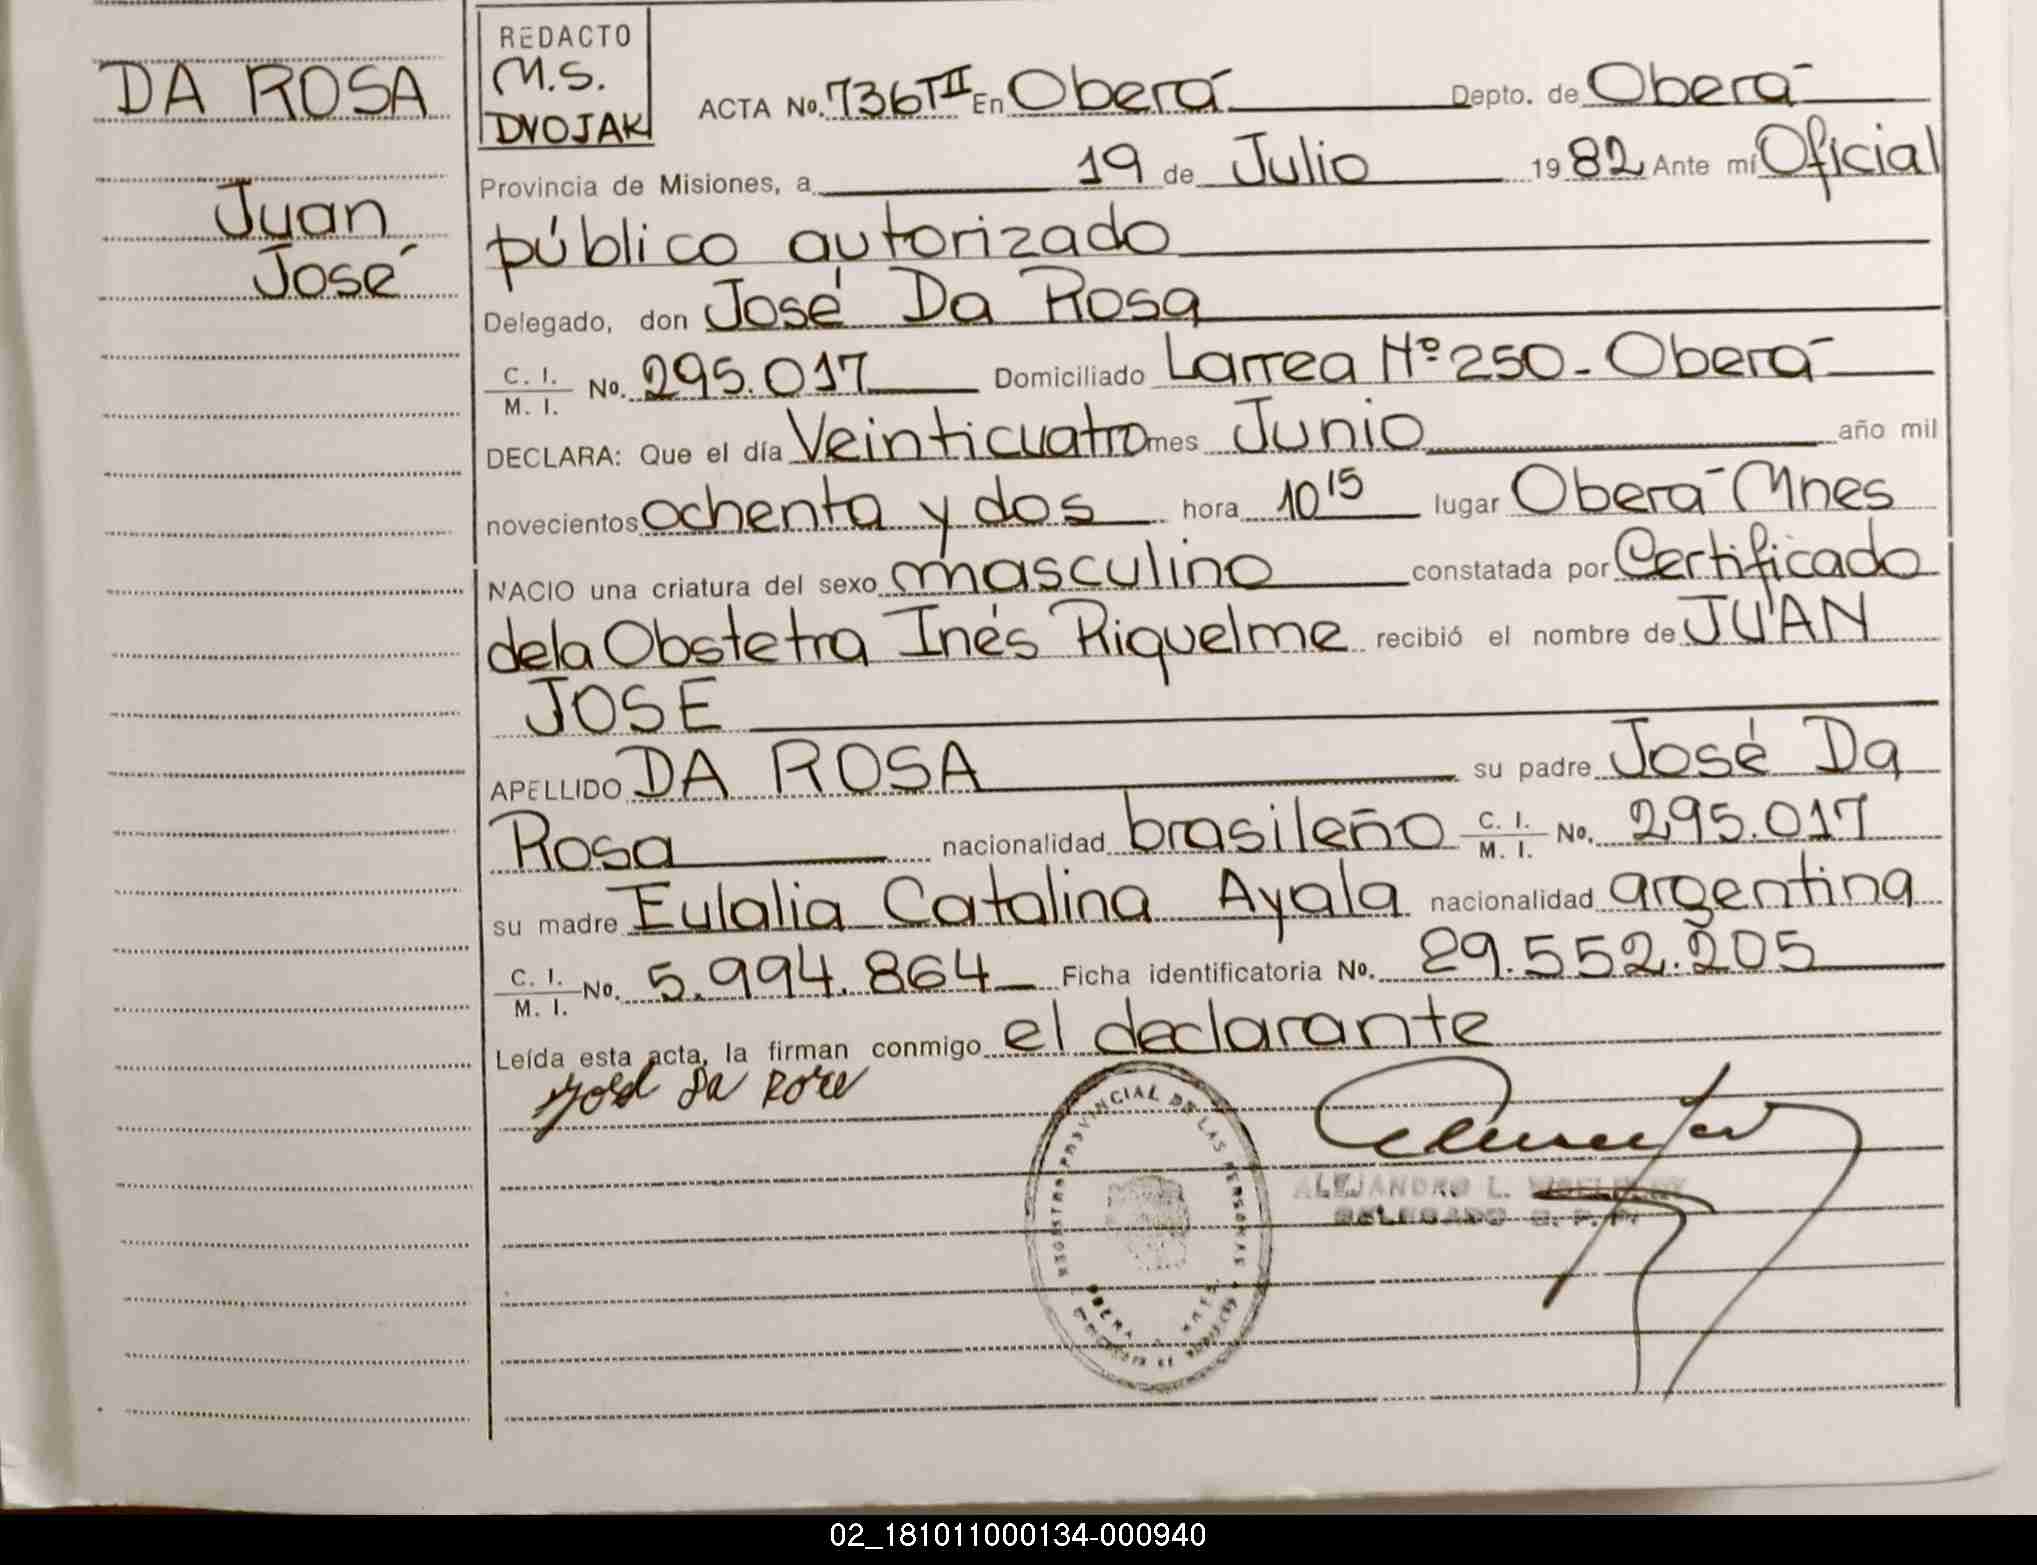 DA ROSA
Juan
José
REDACTO
M.S.
DVOJAK
ACTA No. 736 TII En Oberá Depto. de Oberá
Provincia de Misiones, a 19 de Julio 1982 Ante mí Oficial
público autorizado
Delegado, don José Da Rosa
C. I. / M. I. No. 295.017 Domiciliado Larrea Nº 250 - Oberá
DECLARA: Que el día Veinticuatro mes Junio año mil
novecientos ochenta y dos hora 10 15 lugar Oberá Mnes
NACIO una criatura del sexo masculino constatada por Certificado
de la Obstetra Inés Riquelme recibió el nombre de JUAN
JOSE
APELLIDO DA ROSA su padre José Da
Rosa nacionalidad brasileño C. I. / M. I. No. 295.017
su madre Eulalia Catalina Ayala nacionalidad argentina
C. I. / M. I. No. 5.994.864 Ficha identificatoria No. 29.552.205
Leída esta acta, la firman conmigo el declarante
José Da Rosa
REGISTRO PROVINCIAL DE LAS PERSONAS
OBERA
ALEJANDRO L.
DELEGADO R. P. P.
02_181011000134-000940